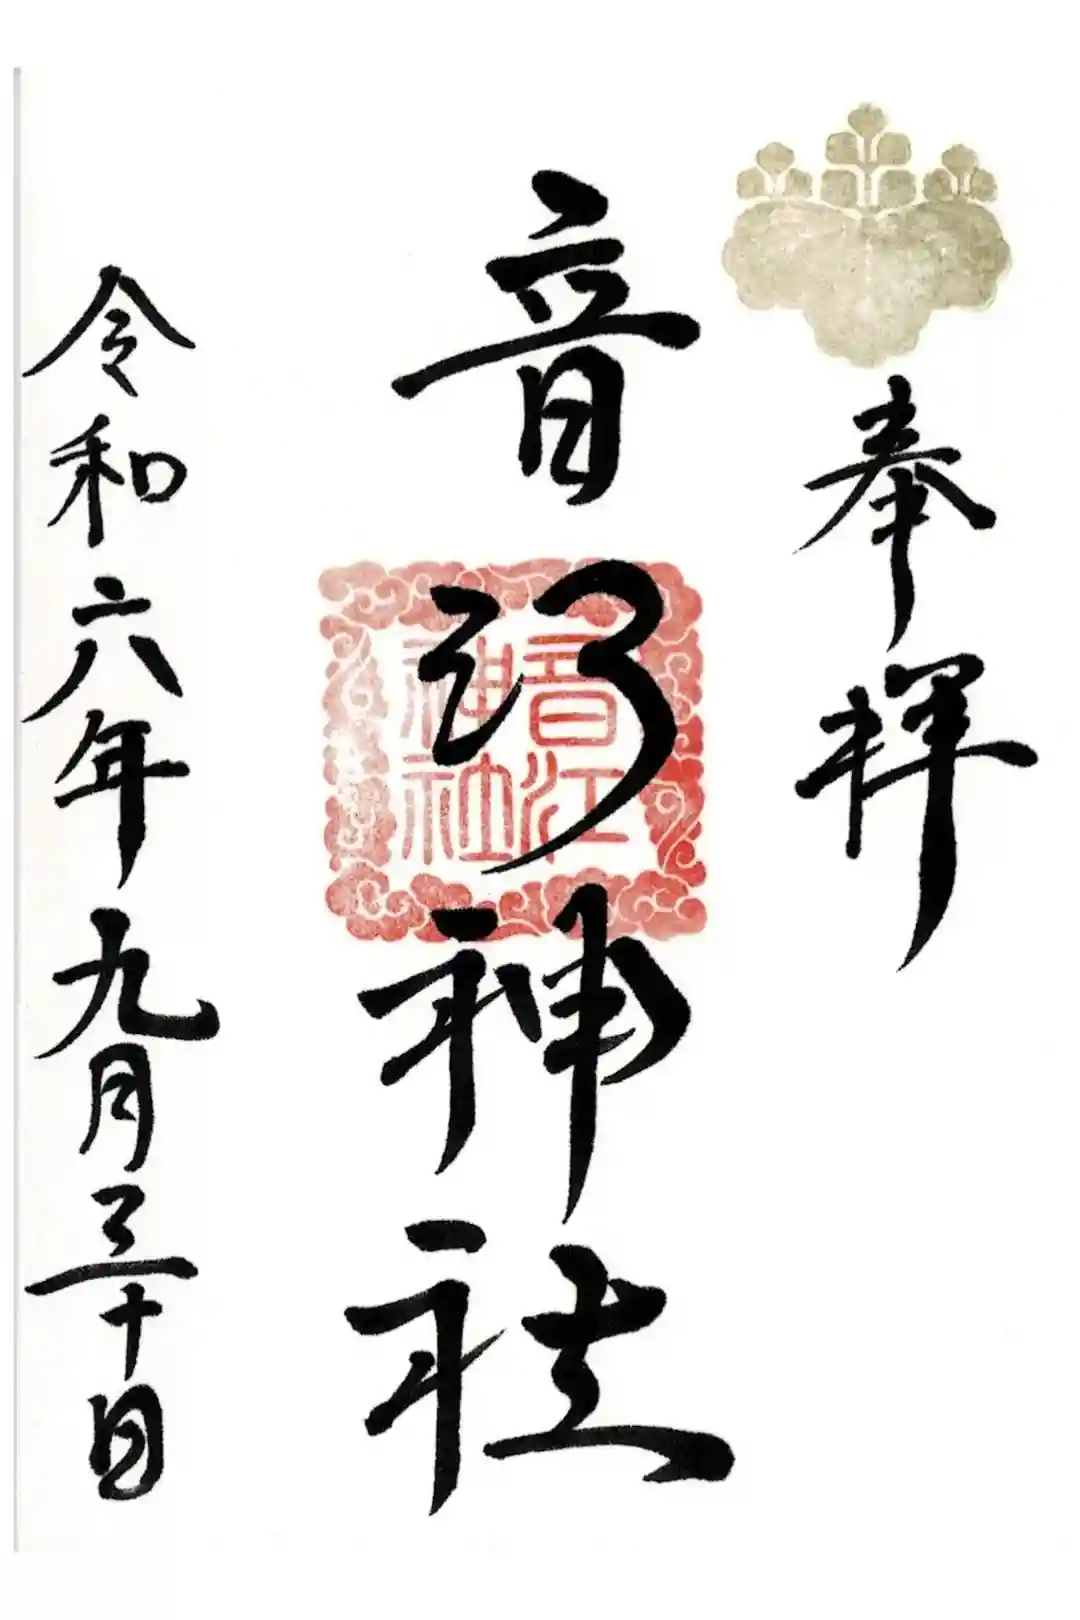 奉拝
音江神社
音江神社
令和六年九月三十日